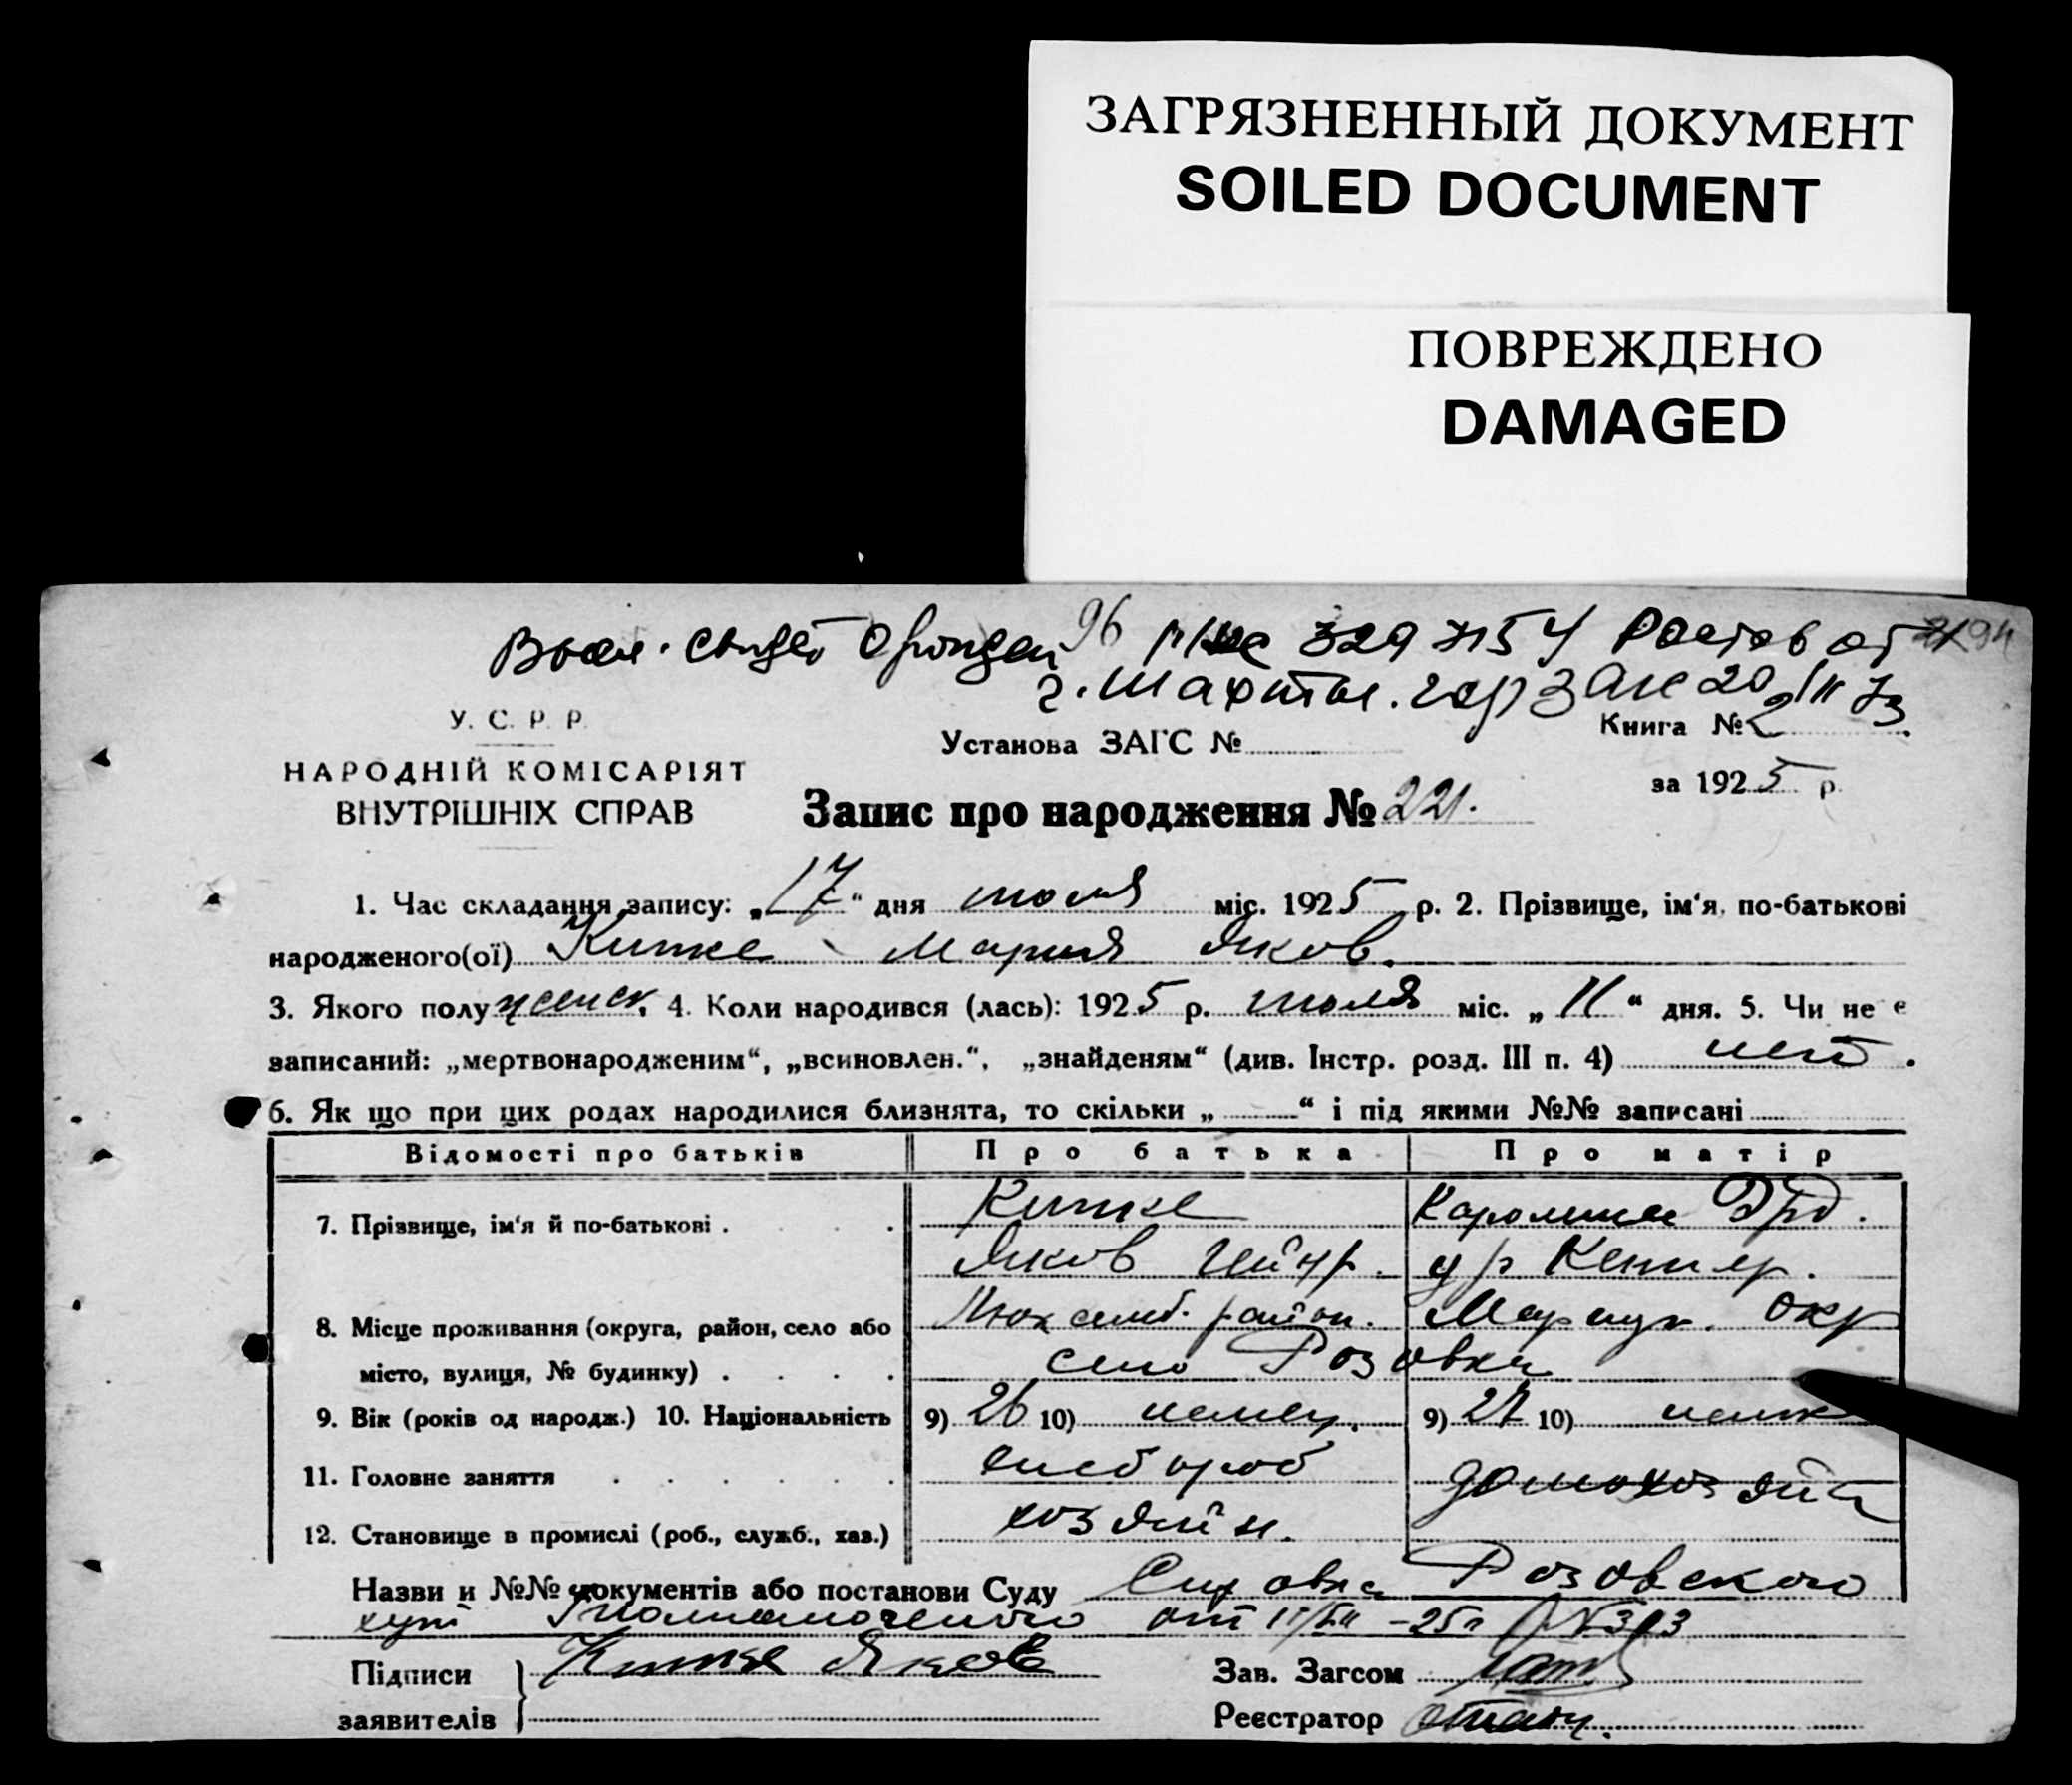 ЗАГРЯЗНЕННЫЙ ДОКУМЕНТ
SOILED DOCUMENT
ПОВРЕЖДЕНО
DAMAGED
96 329 Ростов от
г. Шахты. 20 73
У. С. Р. Р.
НАРОДНІЙ КОМІСАРІЯТ
ВНУТРІШНІХ СПРАВ
Установа ЗАГС №
Книга № 2
за 1925 р.
Запис про народження № 221.
1. Час складання запису: „17“ дня июля міс. 1925 р. 2. Прізвище, ім'я, по-батькові
народженого(ої) Китке Мария Яков.
3. Якого полу женск. 4. Коли народився (лась): 1925 р. июля міс. „11“ дня. 5. Чи не є
записаний: „мертвонародженим“, „всиновлен.“, „знайденям“ (див. Інстр. розд. III п. 4) нет.
6. Як що при цих родах народилися близнята, то скільки „ “ і під якими №№ записані
Відомості про батьків Про батька Про матір
7. Прізвище, ім'я й по-батькові . Китке
Яков
Каролина
ур
8. Місце проживання (округа, район, село або район. Мариуп. окр
місто, вулиця, № будинку) село Розовка
9. Вік (років од народж.) 10. Національність 9) 26 10) немец. 9) 27 10) немк
11. Головне заняття хлебороб домохозяйка
12. Становище в промислі (роб., служб., хаз.) хозяин.
Назви и №№ документів або постанови Суду Справка Розовского
от -25г
Підписи Китке Яков
заявителів
Зав. Загсом
Реєстратор